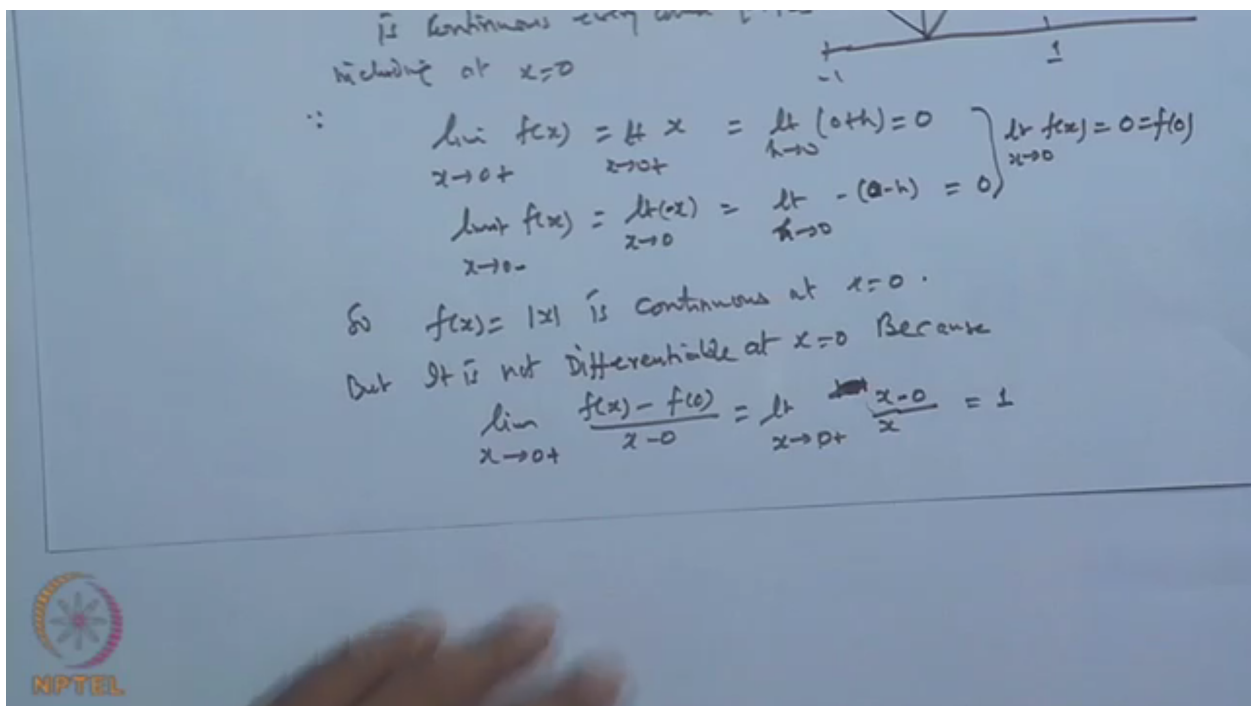 is continuous every
-1
1
including at x=0
∵ lim f(x) = lt x = lt (0+h) = 0
x→0+ x→0+ h→0
limit f(x) = lt (-x) = lt -(0-h) = 0
x→0- x→0 h→0
lt f(x) = 0 = f(0)
x→0
So f(x) = |x| is continuous at x=0.
But It is not Differentiable at x=0 Because
lim f(x) - f(0) / x-0 = lt x-0 / x = 1
x→0+ x→0+
NPTEL